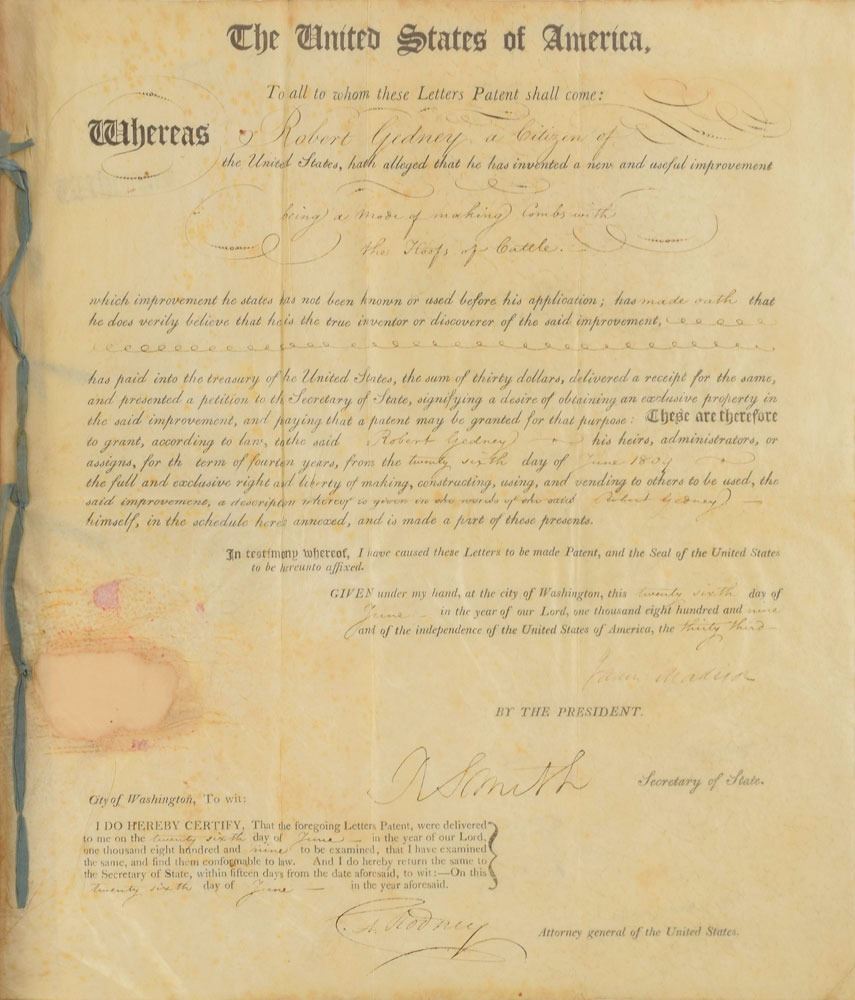 The United States of America,
To all to whom these Letters Patent shall come:
Whereas Robert Gedney a Citizen of
the United States, hath alleged that he has invented a new and useful improvement
being a Mode of making Combs with
the Hoofs of Cattle.
which improvement he states has not been known or used before his application; has made oath that
he does verily believe that he is the true inventor or discoverer of the said improvement,
has paid into the treasury of he United States, the sum of thirty dollars, delivered a receipt for the same,
and presented a petition to th Secretary of State, signifying a desire of obtaining an exclusive property in
the said improvement, and paying that a patent may be granted for that purpose: These are therefore
to grant, according to law, to the said Robert Gedney his heirs, administrators, or
assigns, for th term of fourteen years, from the twenty sixth day of June 1809
the full and exclusive right and liberty of making, constructing, using, and vending to others to be used, the
said improvement, a description whereof is given in the words of the said Robert Gedney
himself, in the schedule hereto annexed, and is made a part of these presents.
In testimony whereof, I have caused these Letters to be made Patent, and the Seal of the United States
to be hereunto affixed.
GIVEN under my hand, at the city of Washington, this twenty sixth day of
June in the year of our Lord, one thousand eight hundred and nine
and of the independence of the United States of America, the thirty third
James Madison
BY THE PRESIDENT.
R Smith Secretary of State.
City of Washington, To wit:
I DO HEREBY CERTIFY, That the foregoing Letters Patent, were delivered
to me on the twenty sixth day of June in the year of our Lord,
one thousand eight hundred and nine to be examined, that I have examined
the same, and find them conformable to law. And I do hereby return the same to
the Secretary of State, within fifteen days from the date aforesaid, to wit:—On this
twenty sixth day of June in the year aforesaid.
C. A. Rodney Attorney general of the United States.